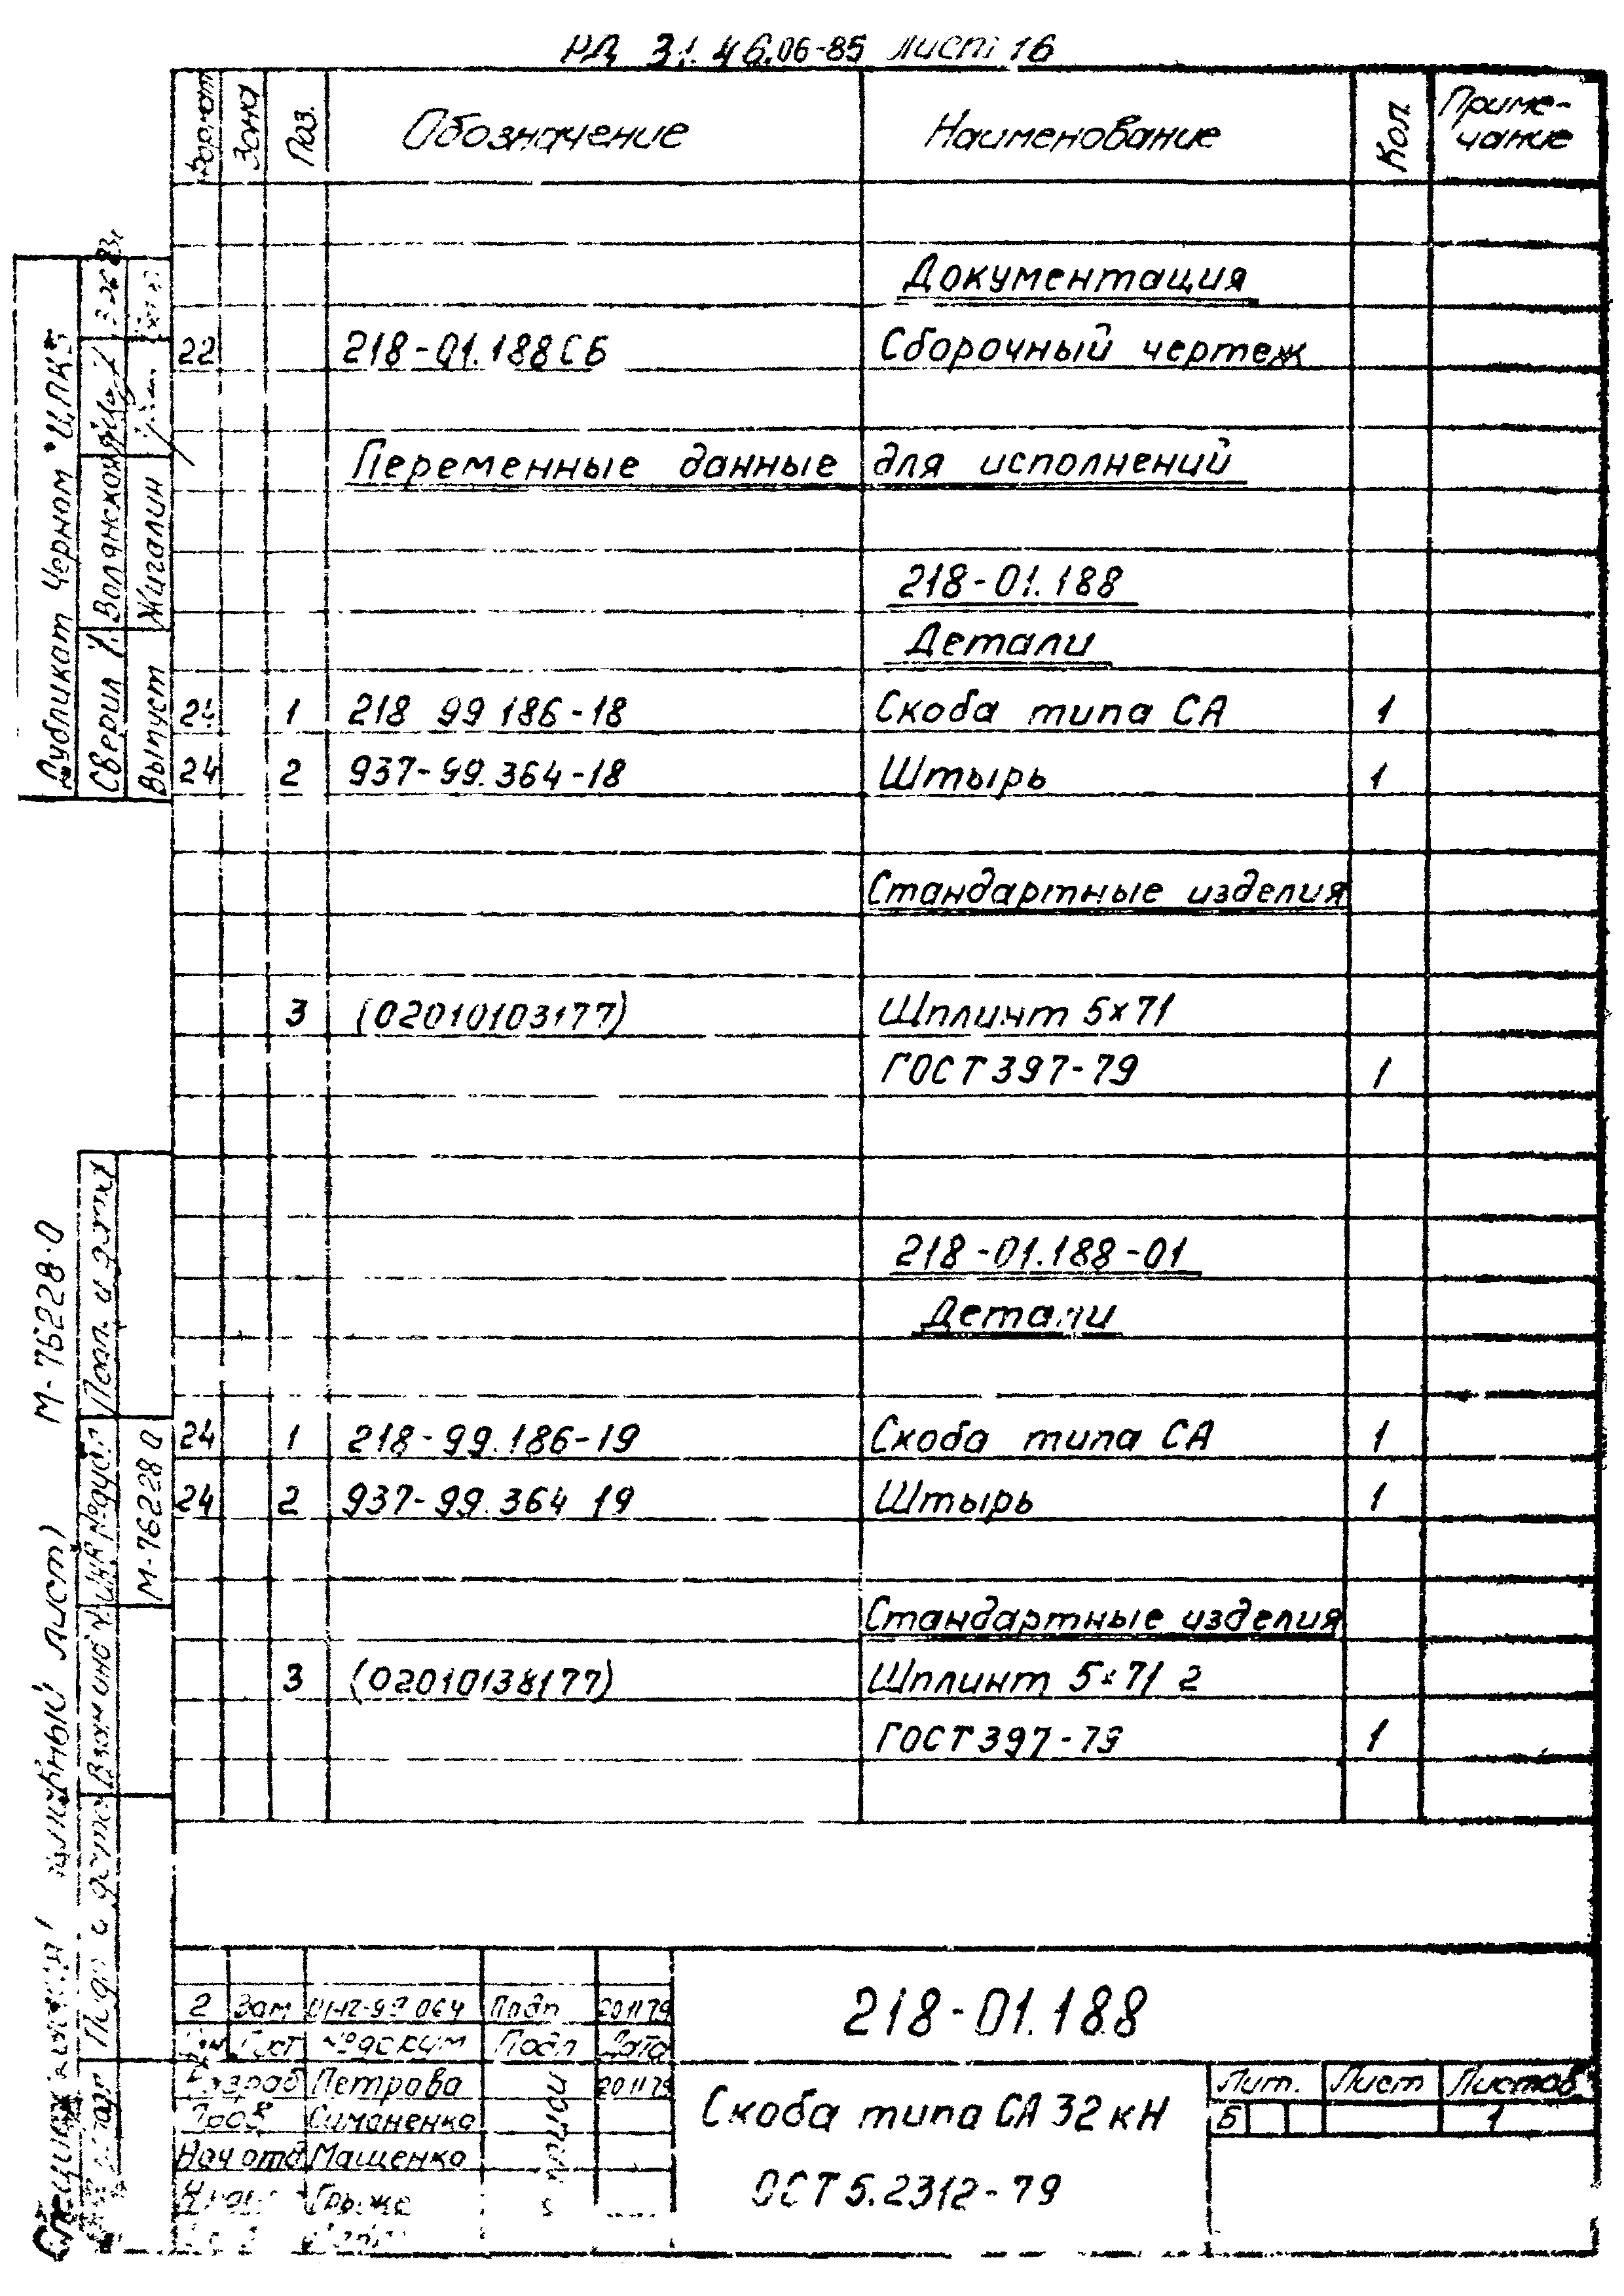 РД 31.46.06-85 лист 16
Формат Зона Поз. Обозначение Наименование Кол. Приме-
чание
Документация
22 218-01.188СБ Сборочный чертеж
Переменные данные для исполнений
218-01.188
Детали
1 218 99 186-18 Скоба типа СА 1
24 2 937-99.364-18 Штырь 1
Стандартные изделия
3 (02010103177) Шплинт 5x71
ГОСТ 397-79 1
218-01.188-01
Детали
24 1 218-99.186-19 Скоба типа СА 1
24 2 937-99.364 19 Штырь 1
Стандартные изделия
3 (02010138177) Шплинт 5x71 2
ГОСТ 397-79 1
Дубликат Черном
Сверил Волянская
Выпуст Жигалин
М-76228-0
Подп. и дата
Инв № дубл
М-76228 0
Взам инв №
Подп и дата
лист)
2 Зам 064 Подп 201179
Лист № докум Подп Дата
Разраб Петрова 201179
Пров Симоненко
Нач отд Мащенко
218-01.188
Скоба типа СА 32 кН
ОСТ 5.2312-79
Лит. Лист Листов
Б 1